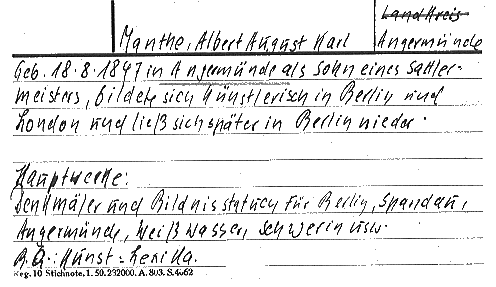 Landkreis
Manthe, Albert August Karl
Angermünde
Geb. 18.8.1847 in Angermünde als Sohn eines Sattler-
meisters, bildete sich künstlerisch in Berlin und
London und ließ sich später in Berlin nieder.
Hauptwerke:
Denkmäler und Bildnisstatuen für Berlin, Spandau,
Angermünde, Weißwasser, Schwerin usw.
Kunst-Lexika.
Reg. 10 Stichnote. 1. 50. 232000. A. 803. S. 4662